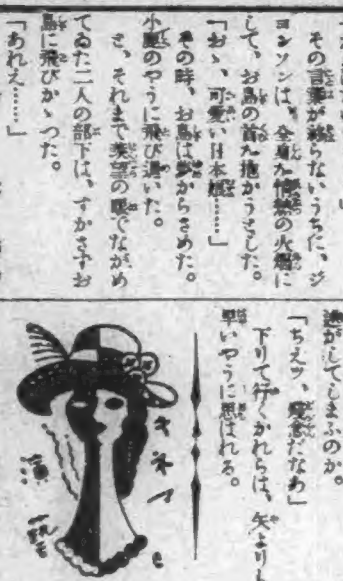 その言葉が終らないうちに、ジ
ヨンソンは、全身を情熱の火焔に
して、お島の首を抱かうとした。
「おゝ、可愛い日本娘……」
その時、お島は夢からさめた。
小鹿のやうに飛び退いた。
と、それまで羨望の眼でながめ
てゐた二人の部下は、すかさずお
島に飛びかゝつた。
「あれえ……」
逃がしてしまふのか。
「ちえツ、残念だなあ」
下りて行くかれらは、矢より
早いやうに思はれる。
キネマ
と
演芸